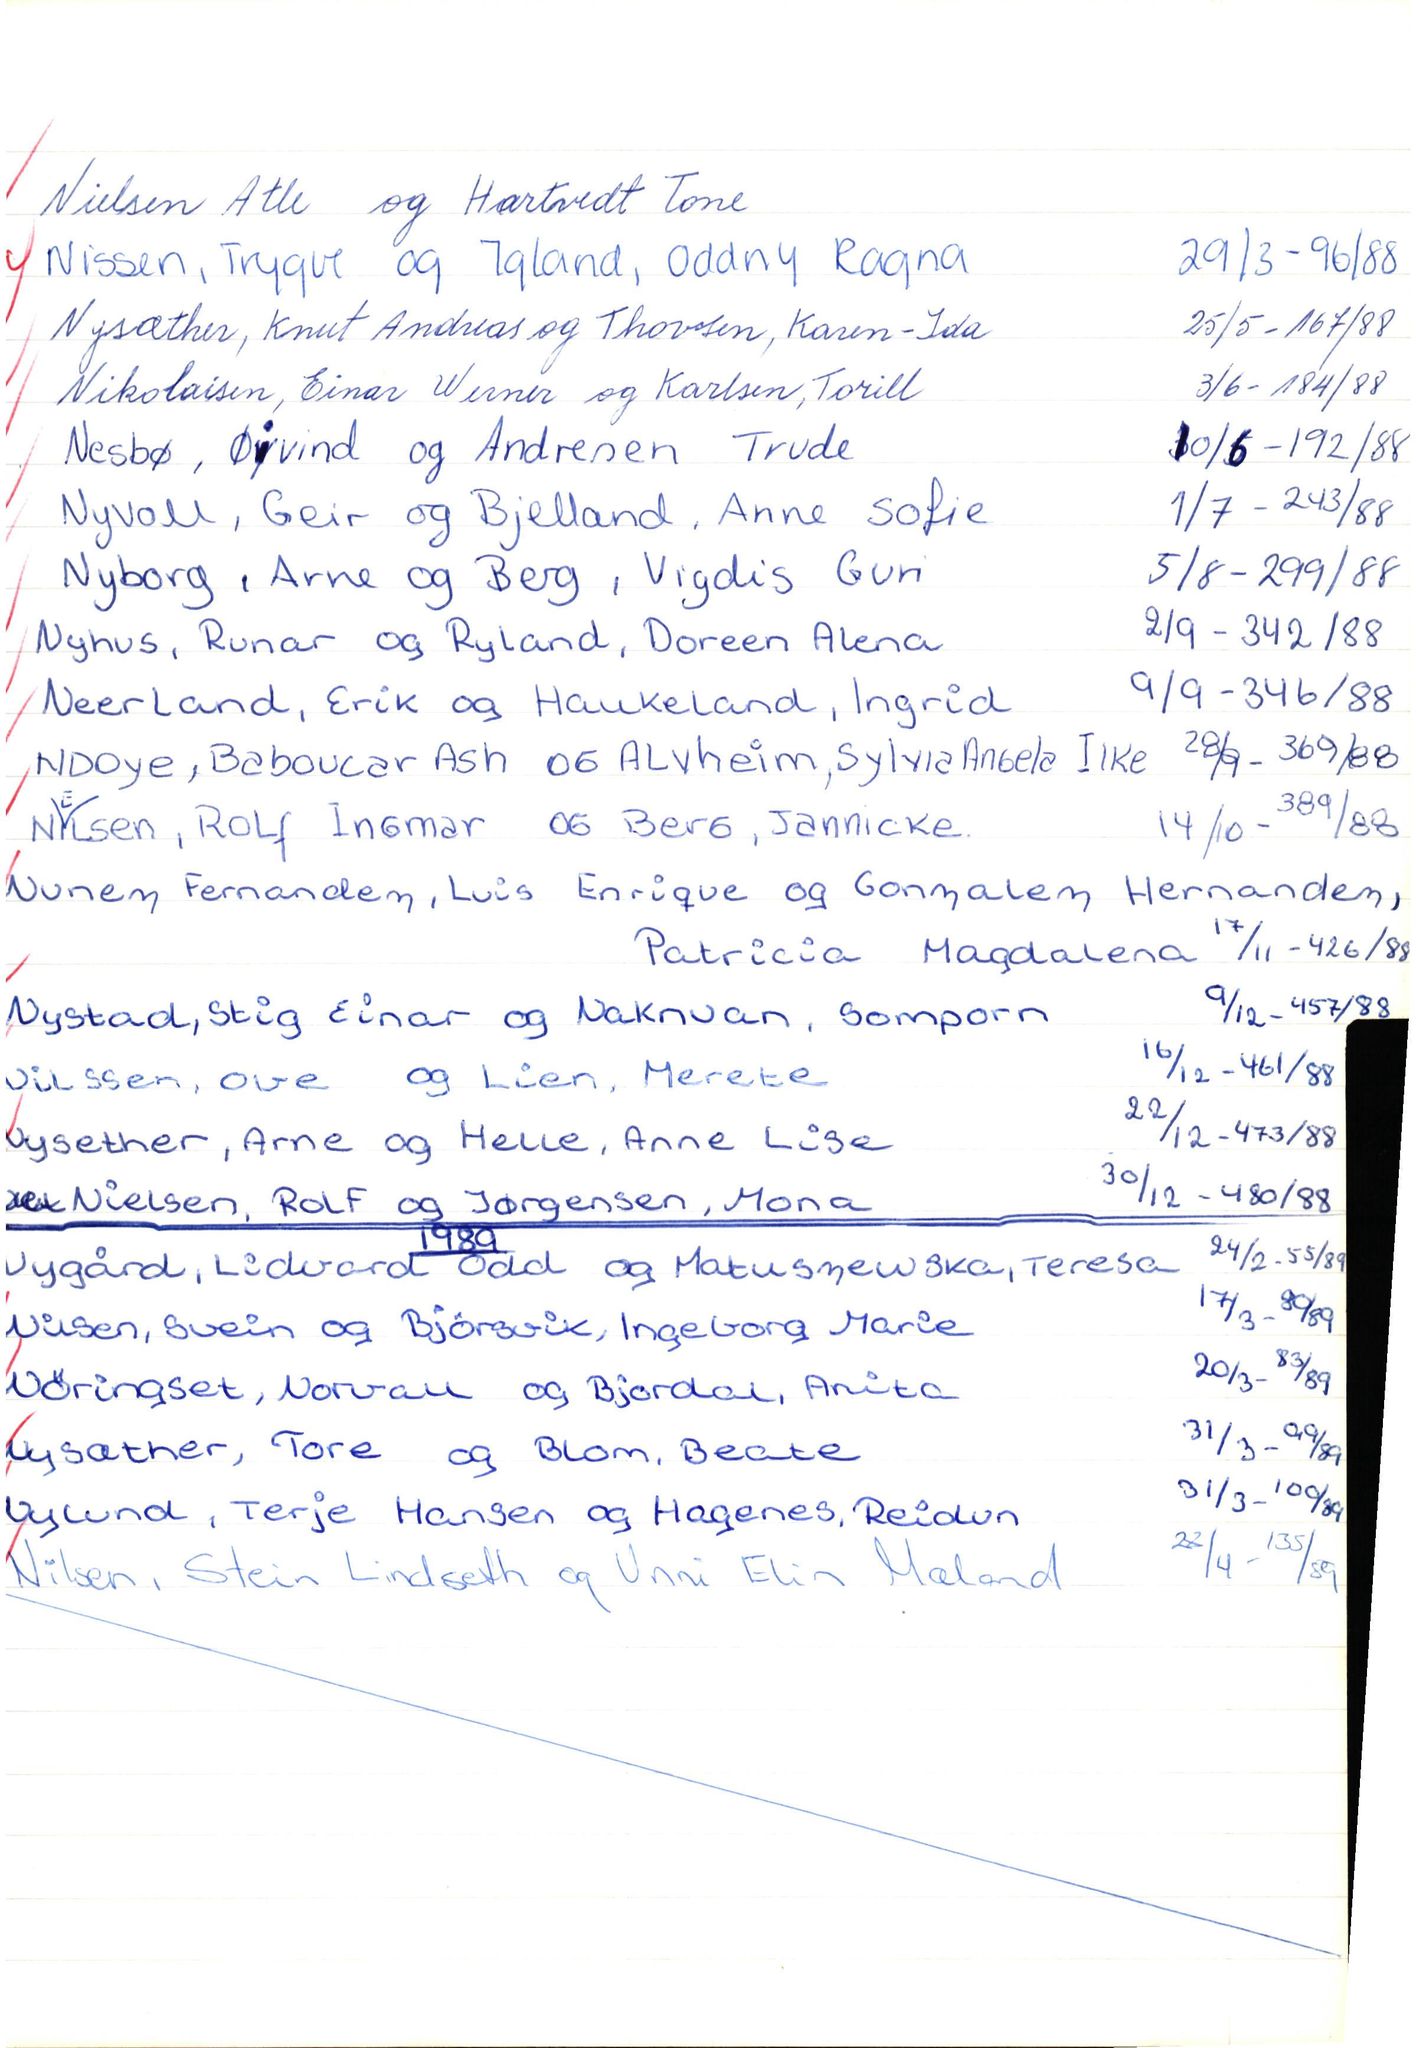 Nielsen Atle og Hartvedt Tone
Nissen, Trygve og Igland, Oddny Ragna 29/3 - 96/88
Nysæther, Knut Andreas og Thorsen, Karen-Ida 25/5 - 167/88
Nikolaisen, Einar Werner og Karlsen, Torill 3/6 - 184/88
Nesbø, Øyvind og Andresen Trude 10/6 - 192/88
Nyvoll, Geir og Bjelland, Anne Sofie 1/7 - 243/88
Nyborg, Arne og Berg, Vigdis Guri 5/8 - 299/88
Nyhus, Runar og Ryland, Doreen Alena 2/9 - 342/88
Neerland, Erik og Haukeland, Ingrid 9/9 - 346/88
NDOye, Baboucar Ash OG ALVheim, Sylvia Angela Ilke 28/9 - 369/88
NILsen, ROLf Ingmar OG Berg, Jannicke. 14/10 - 389/88
Nunez Fernandez, Luis Enrique og Gonzalez Hernandez,
Patricia Magdalena 17/11 - 426/88
Nystad, Stig Einar og Naknuan, Somporn 9/12 - 457/88
Nilssen, Ove og Lien, Merete 16/12 - 461/88
Nysether, Arne og Helle, Anne Lise 22/12 - 473/88
Nielsen, Rolf og Jørgensen, Mona 30/12 - 480/88
1989
Nygård, Lidvard Odd og Matuszewska, Teresa 24/2 - 55/89
Nilsen, Svein og Bjørsvik, Ingeborg Marie 17/3 - 80/89
Nöringset, Norvall og Bjordal, Anita 20/3 - 83/89
Nysæther, Tore og Blom, Beate 31/3 - 99/89
Nylund, Terje Hansen og Hagenes, Reidun 31/3 - 100/89
Nilsen, Stein Lindseth og Unni Elin Mæland 22/4 - 135/89